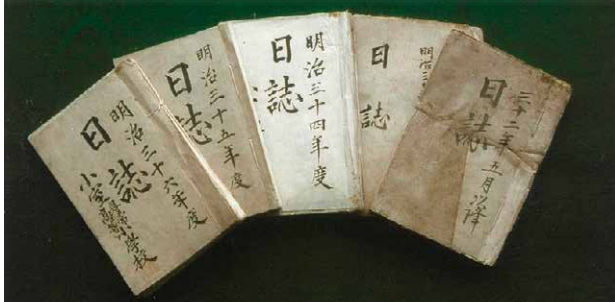 明治三十六年度
日誌
小室尋常高等小学校
明治三十五年度
日誌
明治三十四年度
日誌
明治三
日誌
三十二年五月以降
日誌